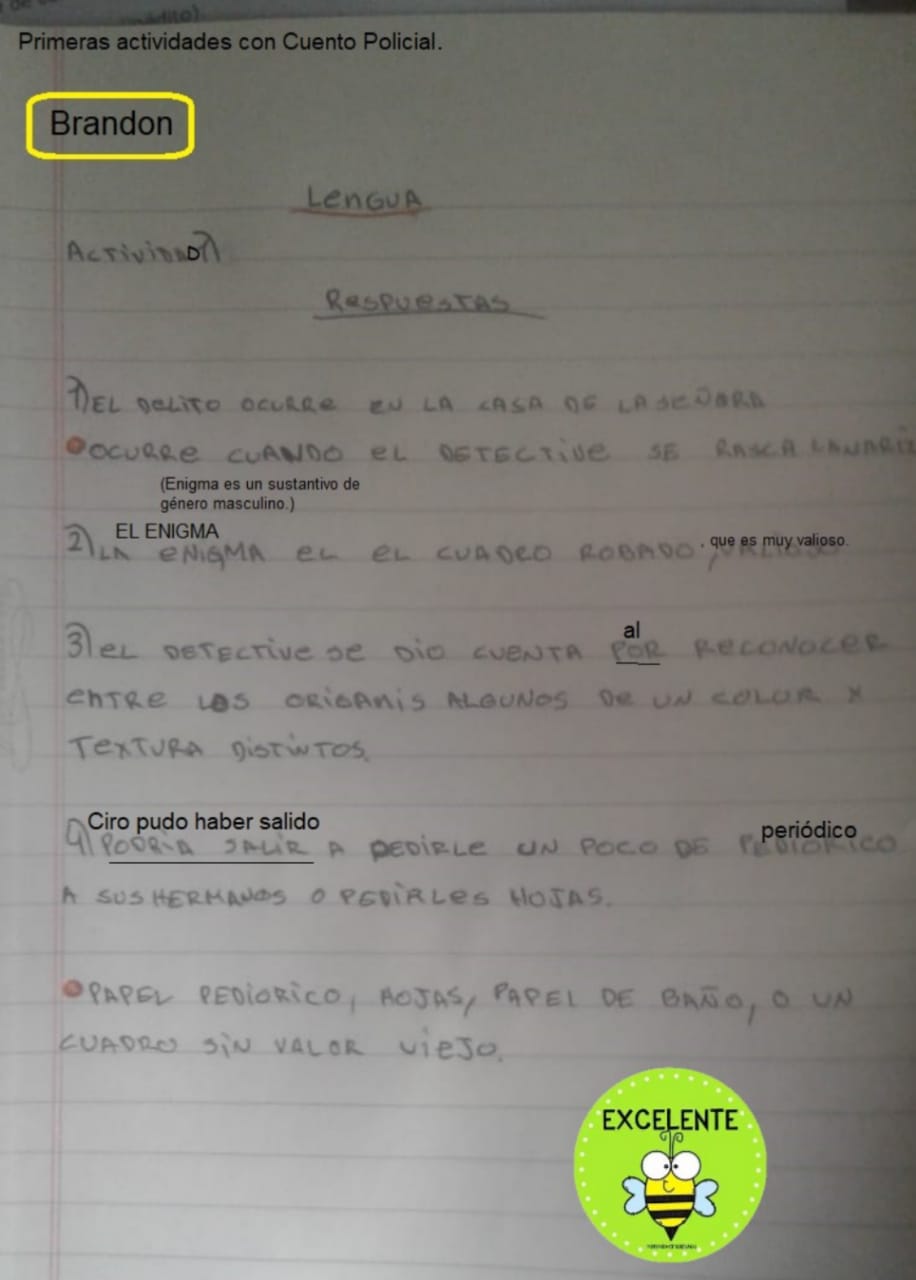 Primeras actividades con Cuento Policial.
Brandon
LENGUA
ACTIVIDAD 1)
RESPUESTAS
1) EL DELITO OCURRE EN LA CASA DE LA SEÑORA
OCURRE CUANDO EL DETECTIVE SE RASCA LA NARIZ
(Enigma es un sustantivo de
género masculino.)
EL ENIGMA
2) LA ENIGMA EL EL CUADRO ROBADO, VALIOSO
, que es muy valioso.
al
3) EL DETECTIVE SE DIO CUENTA POR RECONOCER
ENTRE LOS ORIGAMIS ALGUNOS DE UN COLOR Y
TEXTURA DISTINTOS.
Ciro pudo haber salido
periódico
4) PODRIA SALIR A PEDIRLE UN POCO DE PEDIORICO
A SUS HERMANOS O PEDIRLES HOJAS.
PAPEL PEDIORICO, HOJAS, PAPEL DE BAÑO, O UN
CUADRO SIN VALOR VIEJO.
EXCELENTE